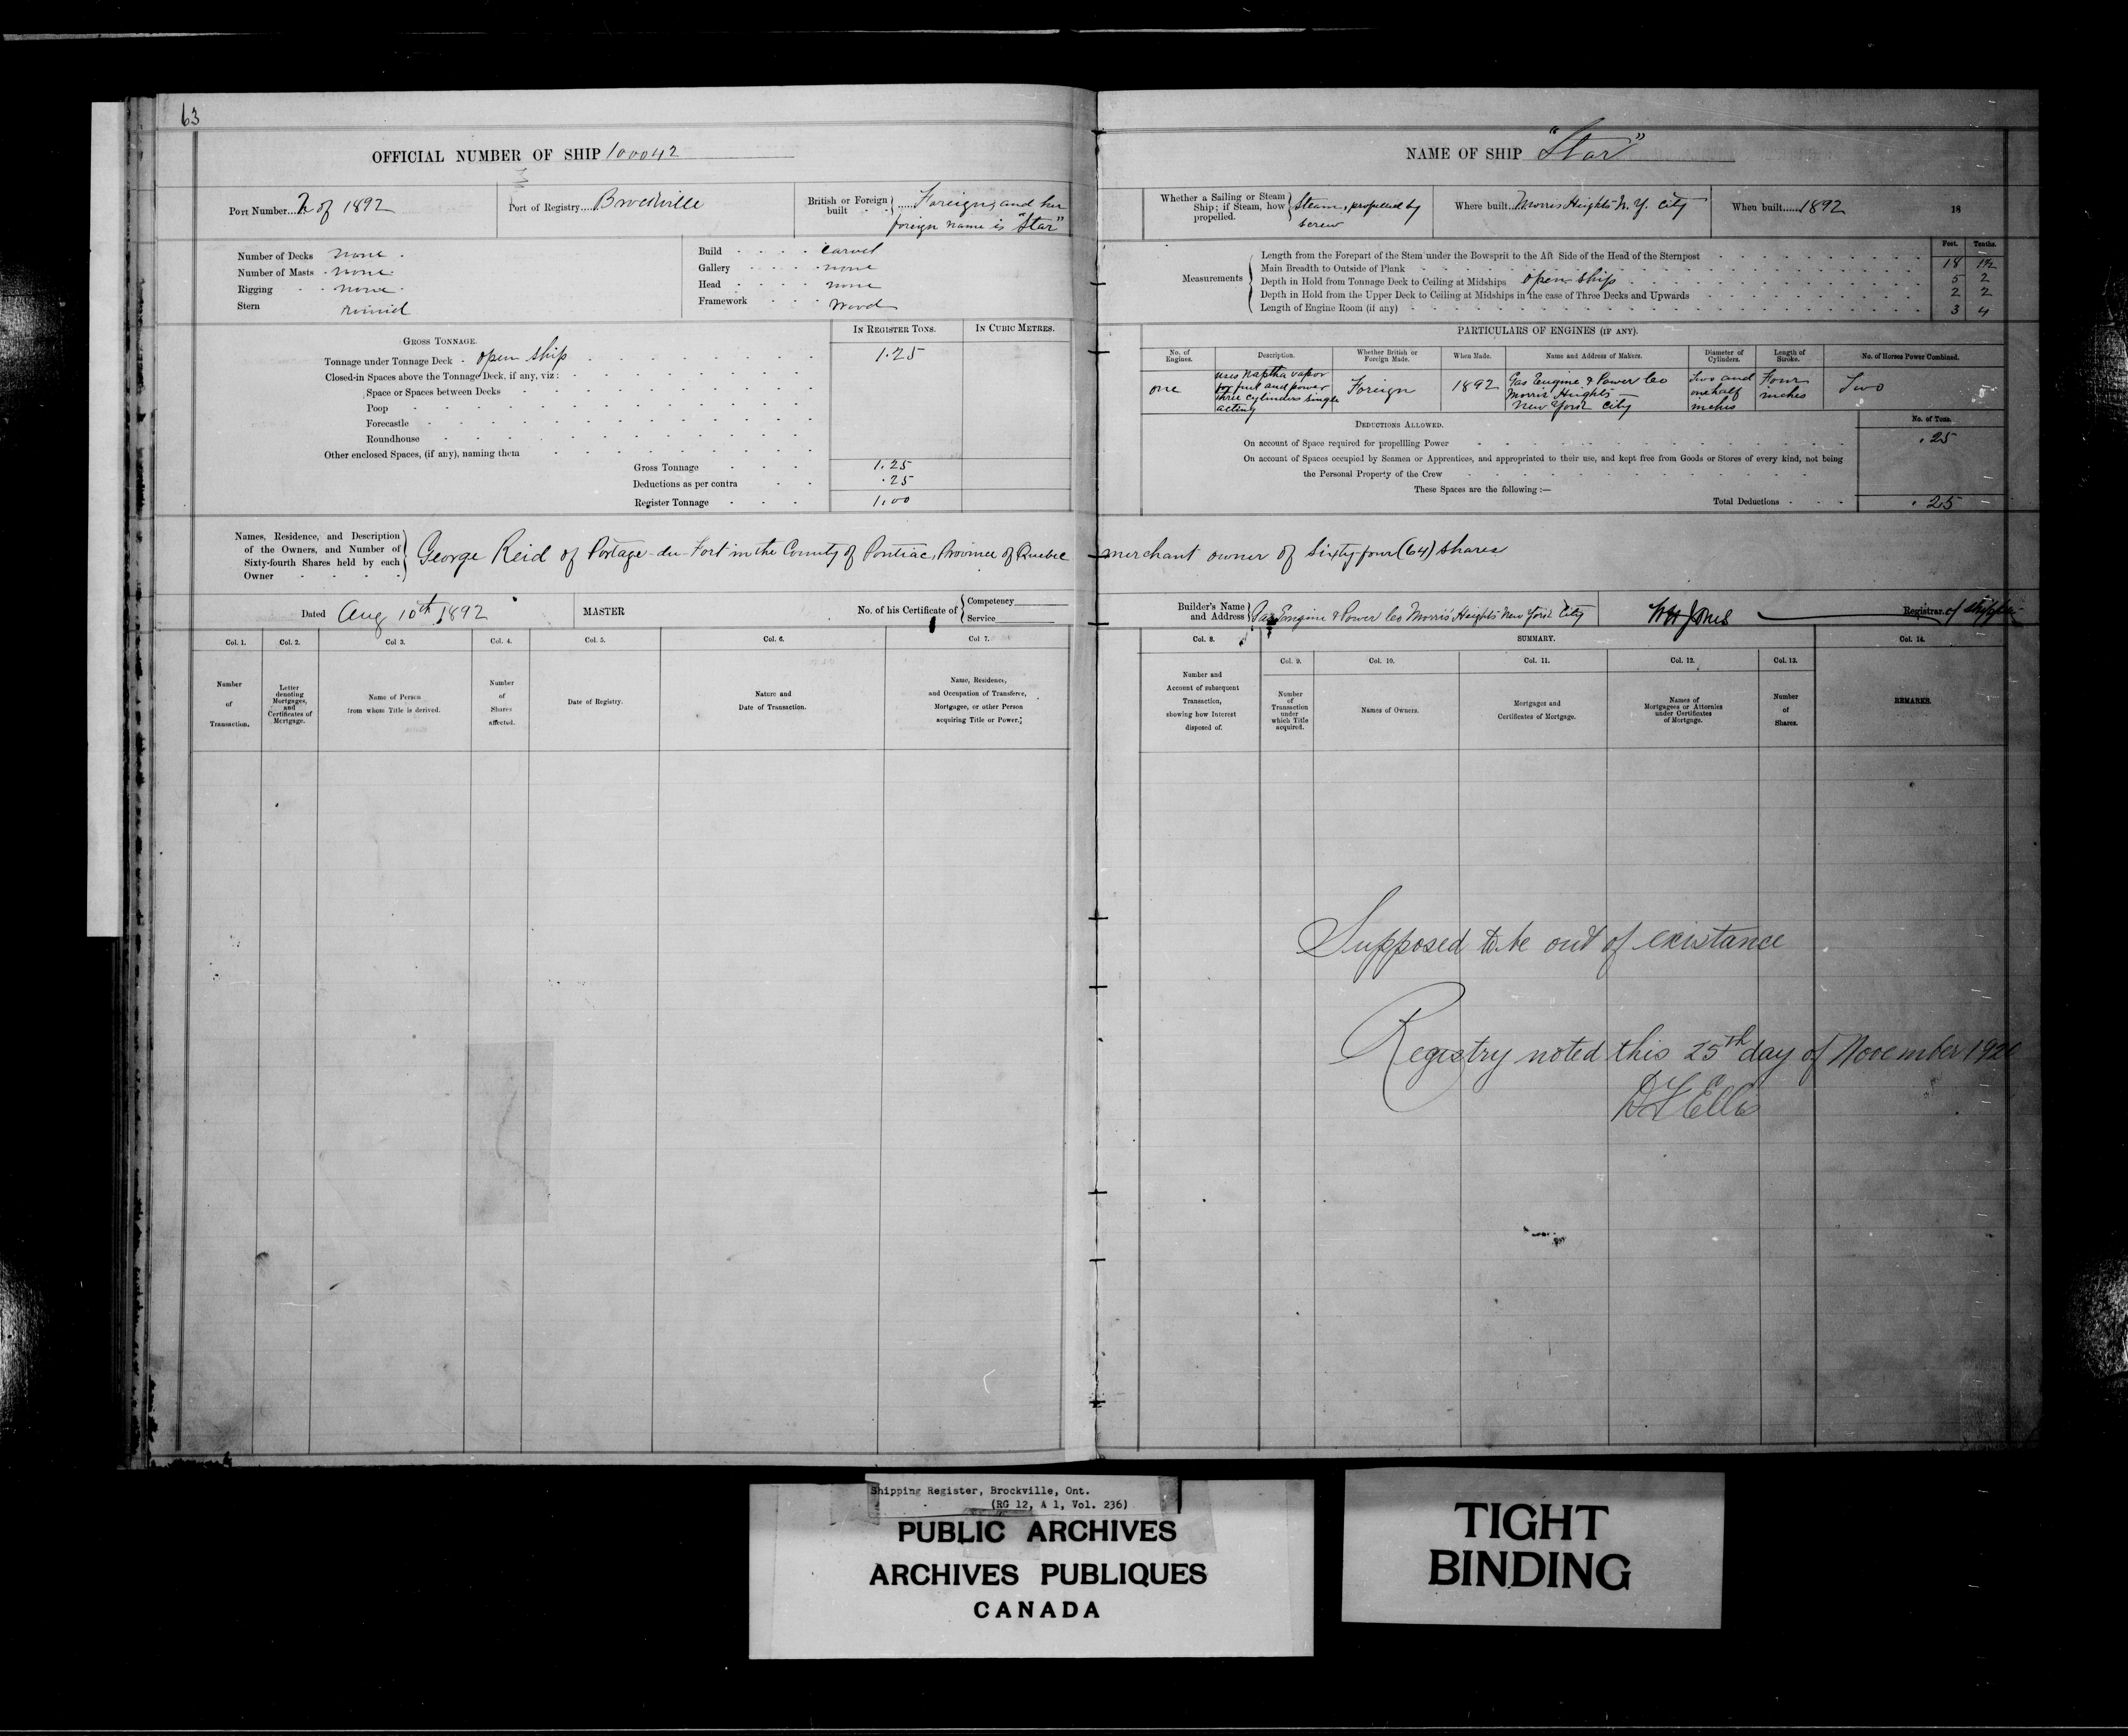 63
OFFICIAL NUMBER OF SHIP 100042
Port Number.... 2 of 1892
Port of Registry.... Brockville
British or Foreign built } ..... Foreign, and her
foreign name is "Star"
Number of Decks none
Number of Masts none
Rigging none
Stern round
Build carvel
Gallery none
Head none
Framework wood
GROSS TONNAGE.
IN REGISTER TONS.
IN CUBIC METRES.
Tonnage under Tonnage Deck open ship 1.25
Closed-in Spaces above the Tonnage Deck, if any, viz:
Space or Spaces between Decks
Poop
Forecastle
Roundhouse
Other enclosed Spaces, (if any), naming them
Gross Tonnage 1.25
Deductions as per contra .25
Register Tonnage 1.00
Names, Residence, and Description
of the Owners, and Number of
Sixty-fourth Shares held by each
Owner
George Reid of Portage-du-Fort in the County of Pontiac, Province of Quebec
Dated Aug 10th, 1892
MASTER
No. of his Certificate of { Competency
Service
Col. 1.
Col. 2.
Col 3.
Col. 4.
Col. 5.
Col. 6.
Col 7.
Number
of
Transaction.
Letter
denoting
Mortgages,
and
Certificates of
Mortgage.
Name of Person
from whom Title is derived.
Number
of
Shares
affected.
Date of Registry.
Nature and
Date of Transaction.
Name, Residence,
and Occupation of Transferee,
Mortgagee, or other Person
acquiring Title or Power.
NAME OF SHIP "Star"
Whether a Sailing or Steam
Ship; if Steam, how
propelled. } Steam, propelled by
screw
Where built.. Morris Heights N.Y. City
When built..... 1892
18
Feet. Tenths.
Measurements
Length from the Forepart of the Stem under the Bowsprit to the Aft Side of the Head of the Sternpost 18 1½
Main Breadth to Outside of Plank 5 2
Depth in Hold from Tonnage Deck to Ceiling at Midships open ship 2 2
Depth in Hold from the Upper Deck to Ceiling at Midships in the case of Three Decks and Upwards
Length of Engine Room (if any) 3 4
PARTICULARS OF ENGINES (IF ANY).
No. of
Engines.
Description.
Whether British or
Foreign Made.
When Made.
Name and Address of Makers.
Diameter of
Cylinders.
Length of
Stroke.
No. of Horses Power Combined.
one
uses Naptha vapor
for fuel and power
three cylinders single
acting
Foreign
1892
Gas Engine & Power Co
Morris Heights
New York City
Two and
one half
inches
Four
inches
Two
DEDUCTIONS ALLOWED.
No. of Tons.
On account of Space required for propelling Power .25
On account of Spaces occupied by Seamen or Apprentices, and appropriated to their use, and kept free from Goods or Stores of every kind, not being
the Personal Property of the Crew
These Spaces are the following:—
Total Deductions .25
merchant owner of Sixty four (64) shares
Builder's Name
and Address } Gas Engine & Power Co Morris Heights New York City
WH Jones
Registrar of Shipping
Col. 8.
SUMMARY.
Col. 14.
Col. 9.
Col. 10.
Col. 11.
Col. 12.
Col. 13.
Number and
Account of subsequent
Transaction,
showing how Interest
disposed of.
Number
of
Transaction
under
which Title
acquired.
Names of Owners.
Mortgages and
Certificates of Mortgage.
Names of
Mortgagees or Attornies
under Certificates
of Mortgage.
Number
of
Shares.
REMARKS.
Supposed to be out of existance
Registry noted this 25th day of November
Ellis
Shipping Register, Brockville, Ont.
(RG 12, A 1, Vol. 236)
PUBLIC ARCHIVES
ARCHIVES PUBLIQUES
CANADA
TIGHT
BINDING